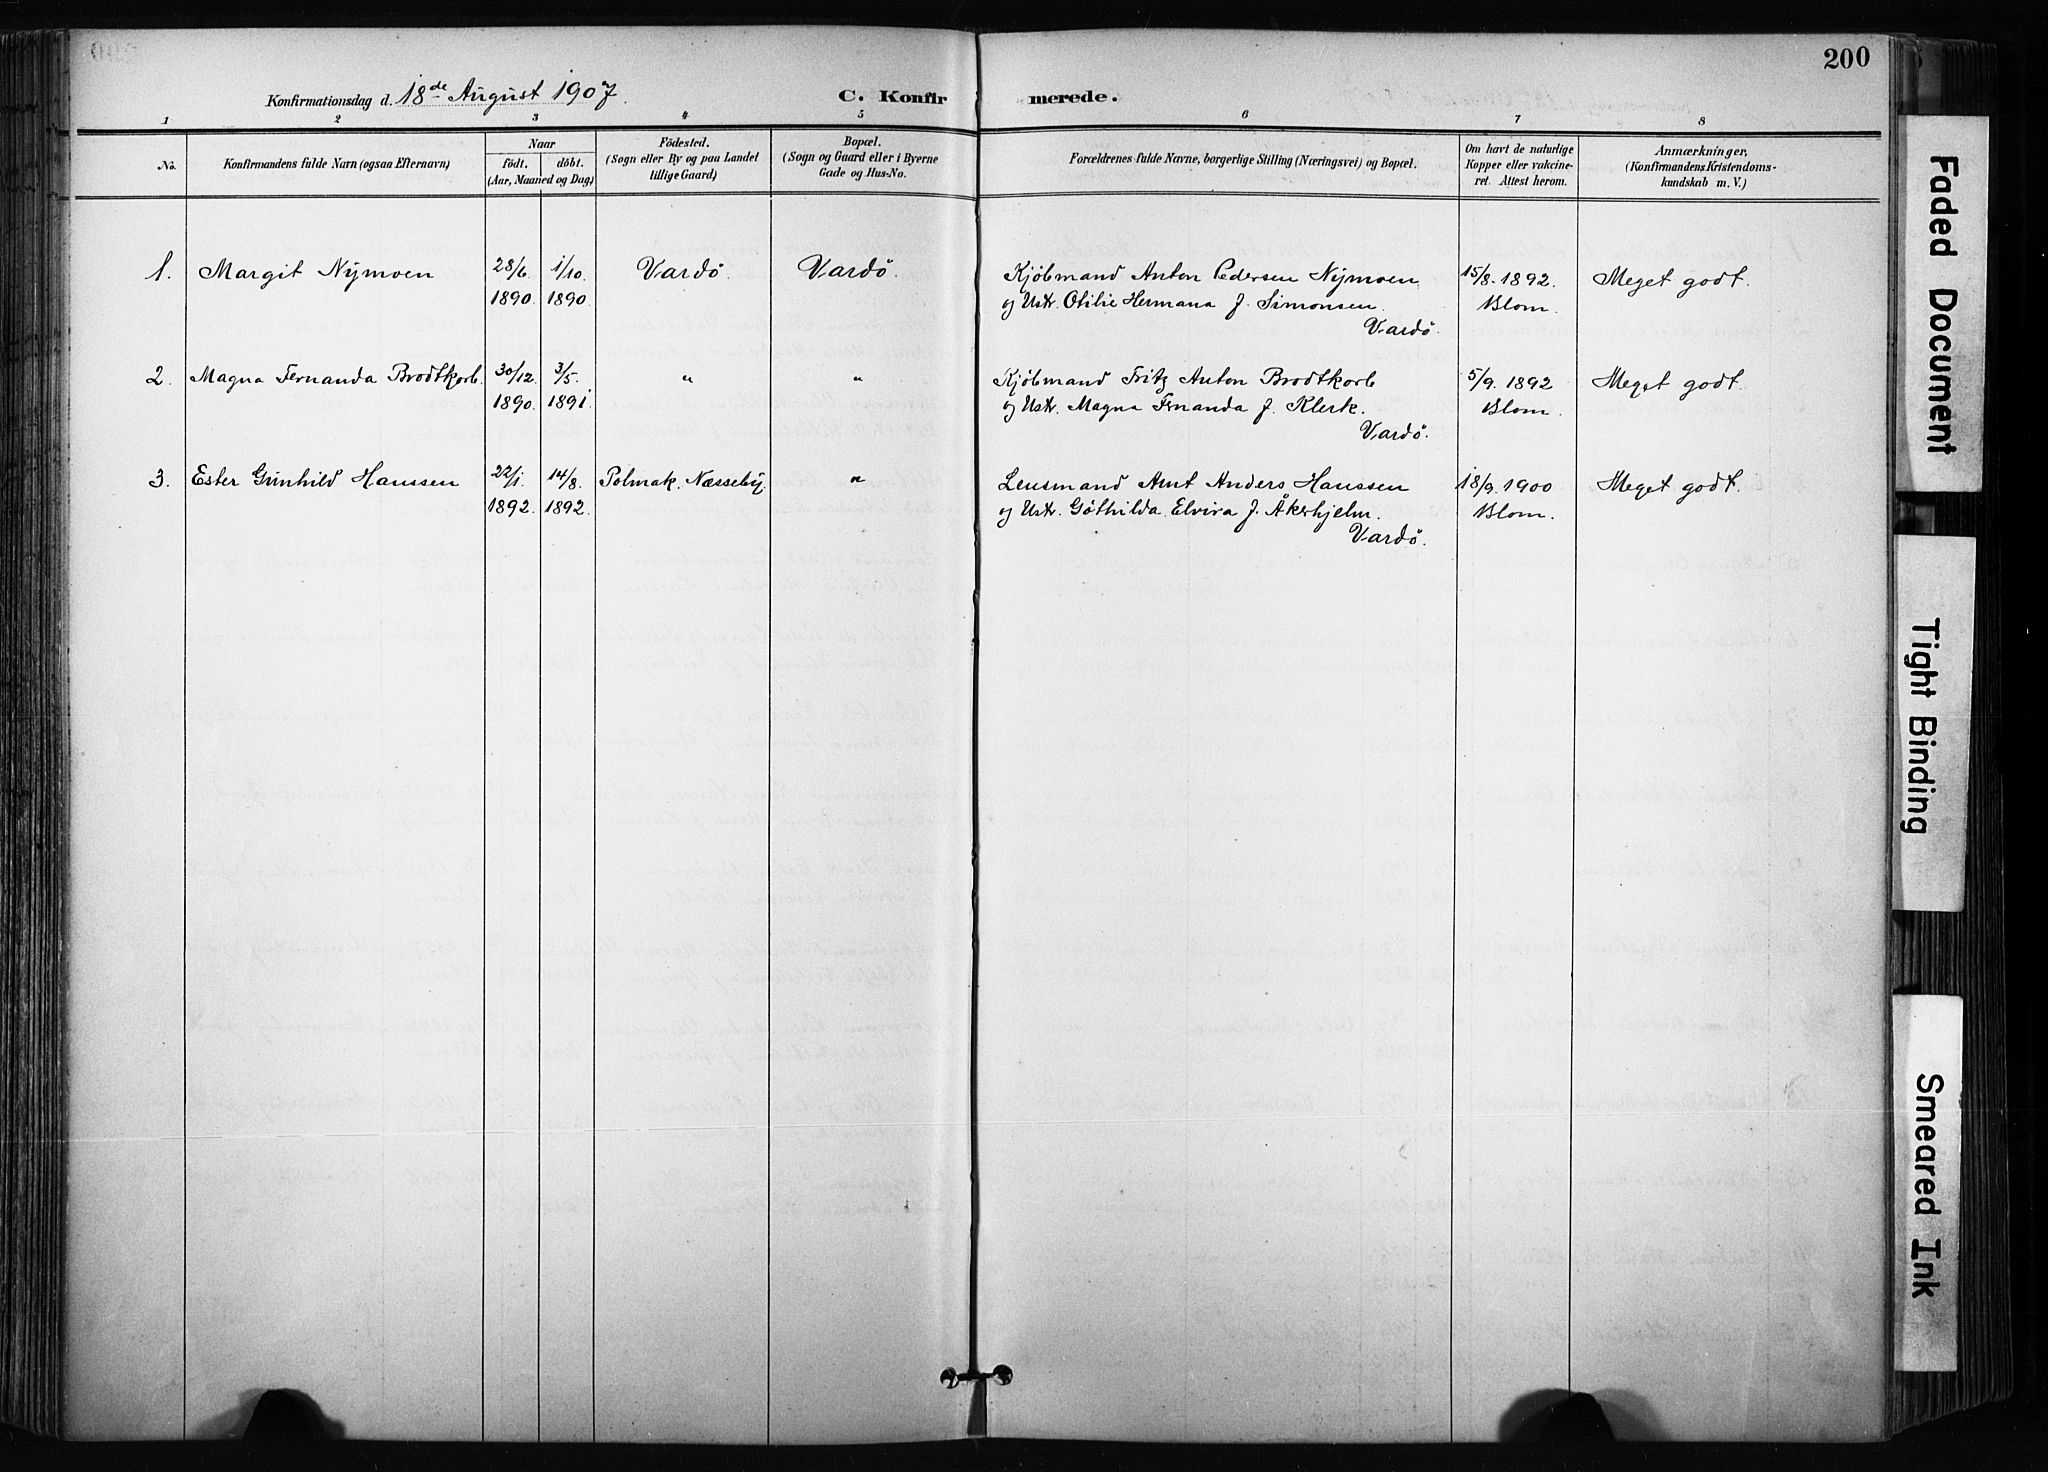 200
Konfirmationsdag d. 18de August 1907.
C. Konfirmerede.
1 2 3 4 5 6 7 8
No.
Konfirmandens fulde Navn (ogsaa Efternavn)
Naar
födt. döbt.
(Aar, Maaned og Dag)
Födested.
(Sogn eller By og paa Landet
tillige Gaard)
Bopæl.
(Sogn og Gaard eller i Byerne
Gade og Hus-No.
Forældrenes fulde Navne, borgerlige Stilling (Næringsvei) og Bopæl.
Om havt de naturlige
Kopper eller vakcine-
ret. Attest herom.
Anmærkninger,
(Konfirmandens Kristendoms-
kundskab m. V.)
1. Margit Nymoen 28/6. 1/10. Vardö. Vardö. Kjöbmand Anton Pedersen Nymoen 15/8. 1892. Meget godt.
1890. 1890. og Ustr. Otilie Hermana f. Simonsen. Blom.
Vardö.
2. Magna Fernanda Brodtkorb. 30/12. 3/5. " " Kjöbmand Fritz Anton Brodtkorb 5/9. 1892 Meget godt.
1890. 1891. og Ustr. Magna Frnanda f. Klerk. Blom.
Vardö.
3. Ester Gunhild Hanssen 22/1. 14/8. Polmak. Næsseby. " Lensmand Amt Anders Hanssen 18/9. 1900 Meget godt.
1892. 1892. og Ustr. Göthilda Elvira f. Åkerhjelm. Blom.
Vardö.
Faded Document
Tight Binding
Smeared Ink